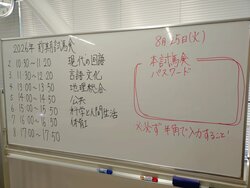 2026年 前期試験
2 10:30 〜 11:20 現代の国語
3 11:30 〜 12:20 言語文化
4 13:00 〜 13:50 地理総合
5 14:00 〜 14:50 公共
6 15:00 〜 15:50 科学と人間生活
7 16:00 〜 16:50 体育I
8 17:00 〜 17:50
8月25日(火)
本試験
パスワード
※必ず半角で入力すること!